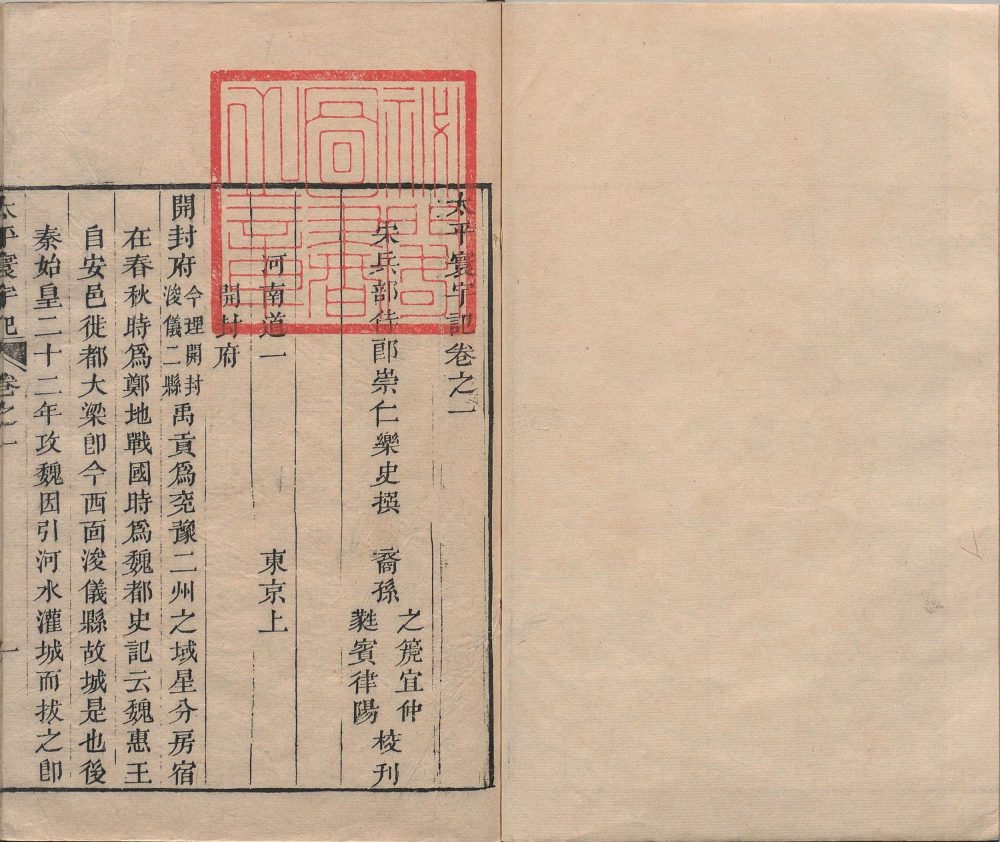 太平寰宇記卷之一
宋兵部侍郎崇仁樂史撰　裔孫
之宜仲
蕤賓律陽
校刊
河南道一　東京上
開封府
開封府
今理開封
浚儀二縣
禹貢爲兗豫二州之域星分房宿
在春秋時爲鄭地戰國時爲魏都史記云魏惠王
自安邑徙都大梁卽今西面浚儀縣故城是也後
秦始皇二十二年攻魏因引河水灌城而拔之卽
太平寰宇記　卷之一　一